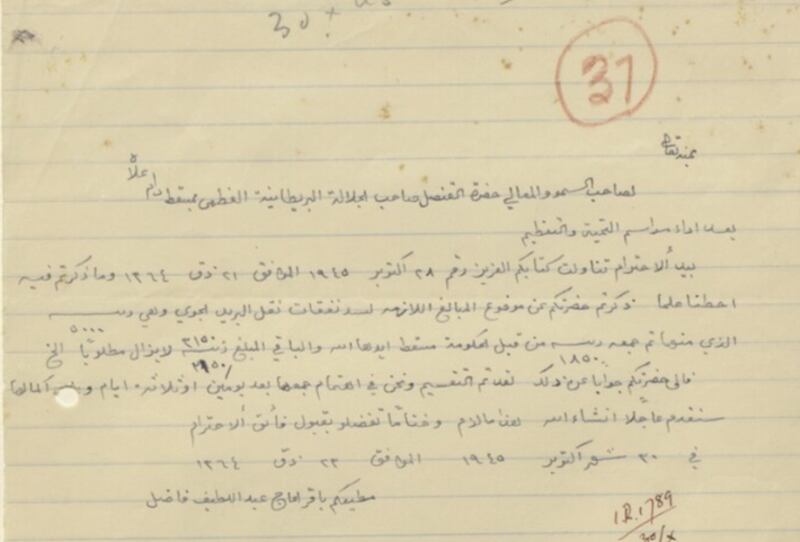 30 x 45
37
بمنه تعالى
لصاحب السمو والمعالي حضرة القنصل صاحب الجلالة البريطانية العظمى بمسقط دام علاه
بعد اداء مراسم التحية والتعظيم
بيد ألاحترام تناولت كتابكم العزيز رقم ٢٨ اكتوبر ١٩٤٥ الموافق ٢١ ذق ١٣٦٤ وما ذكرتم فيه
احطنا علما ذكرتم حضرتكم عن موضوع المبالغ اللازمه لسد نفقات نقل البريد الجوي وهي
٥٠٠٠
الذي منها تم جمعه من قبل الحكومة مسقط ايدها الله والباقي المبلغ ٣١٥٠ لايزال مطلوبًا الخ
1850 ٣١٥٠/
فالى حضرتكم جوابًا عن ذلك لقد تم التقسيم ونحن في اهتمام جمعها بعد يومين اوثلاثة ايام
سنقدم عاجلا انشاء الله هذا مالزم وختامًا تفضلو بقبول فائق ألاحترام
في ٣٠ شهر اكتوبر ١٩٤٥ الموافق ٢٣ ذق ١٣٦٤
مطيعكم باقر الحاج عبد اللطيف فاضل
I.R. 1789
30/x